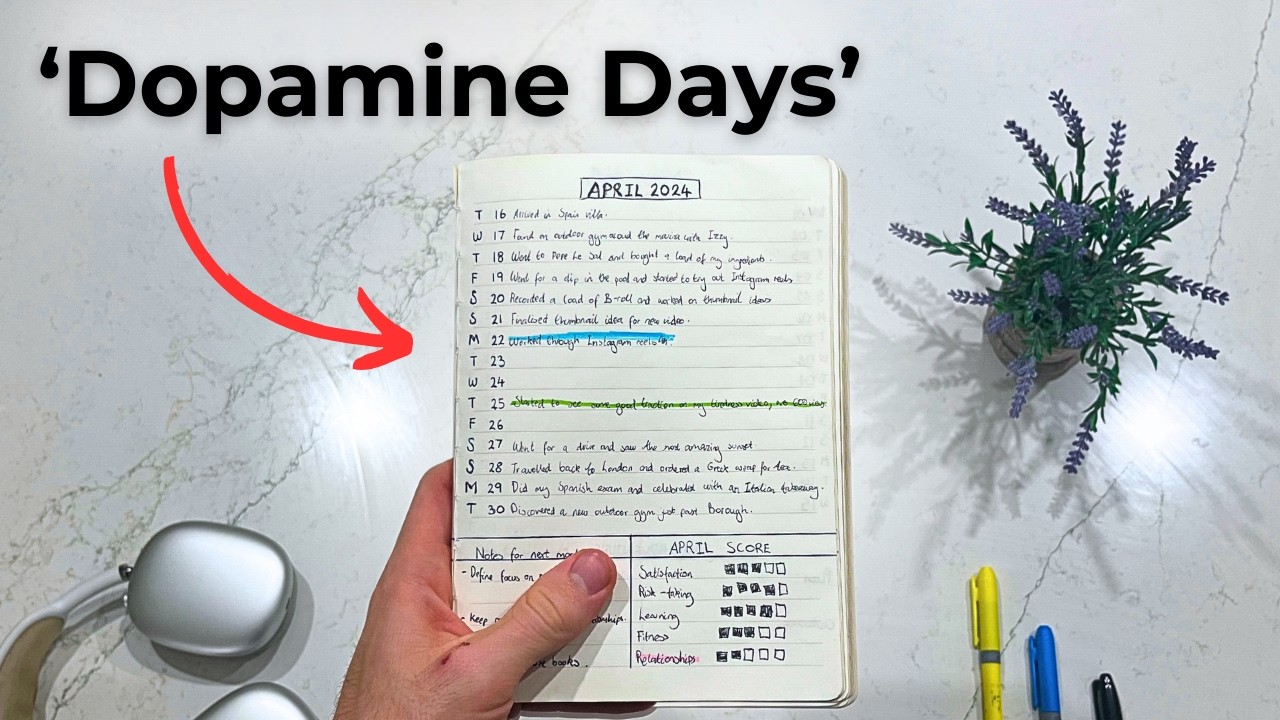 ‘Dopamine Days’
APRIL 2024
T 16 Arrived in Spain villa.
W 17 Found an outdoor gym around the marina with Izzy.
T 18 Went to Pepe La Sal and bought a load of my ingredients.
F 19 Went for a dip in the pool and started to try out Instagram reels
S 20 Recorded a load of B-roll and worked on thumbnail ideas
S 21 Finalised thumbnail idea for new video.
M 22 Worked through Instagram reels
T 23
W 24
T 25 Started to see some good traction on my tiredness video, over 600 views
F 26
S 27 Went for a drive and saw the most amazing sunset.
S 28 Travelled back to London and ordered a Greek wrap for tea.
M 29 Did my Spanish exam and celebrated with an Italian takeaway.
T 30 Discovered a new outdoor gym just past Borough.
Notes for next
- Define focus on
- Keep
books.
APRIL SCORE
Satisfaction
Risk-taking
Learning
Fitness
Relationships